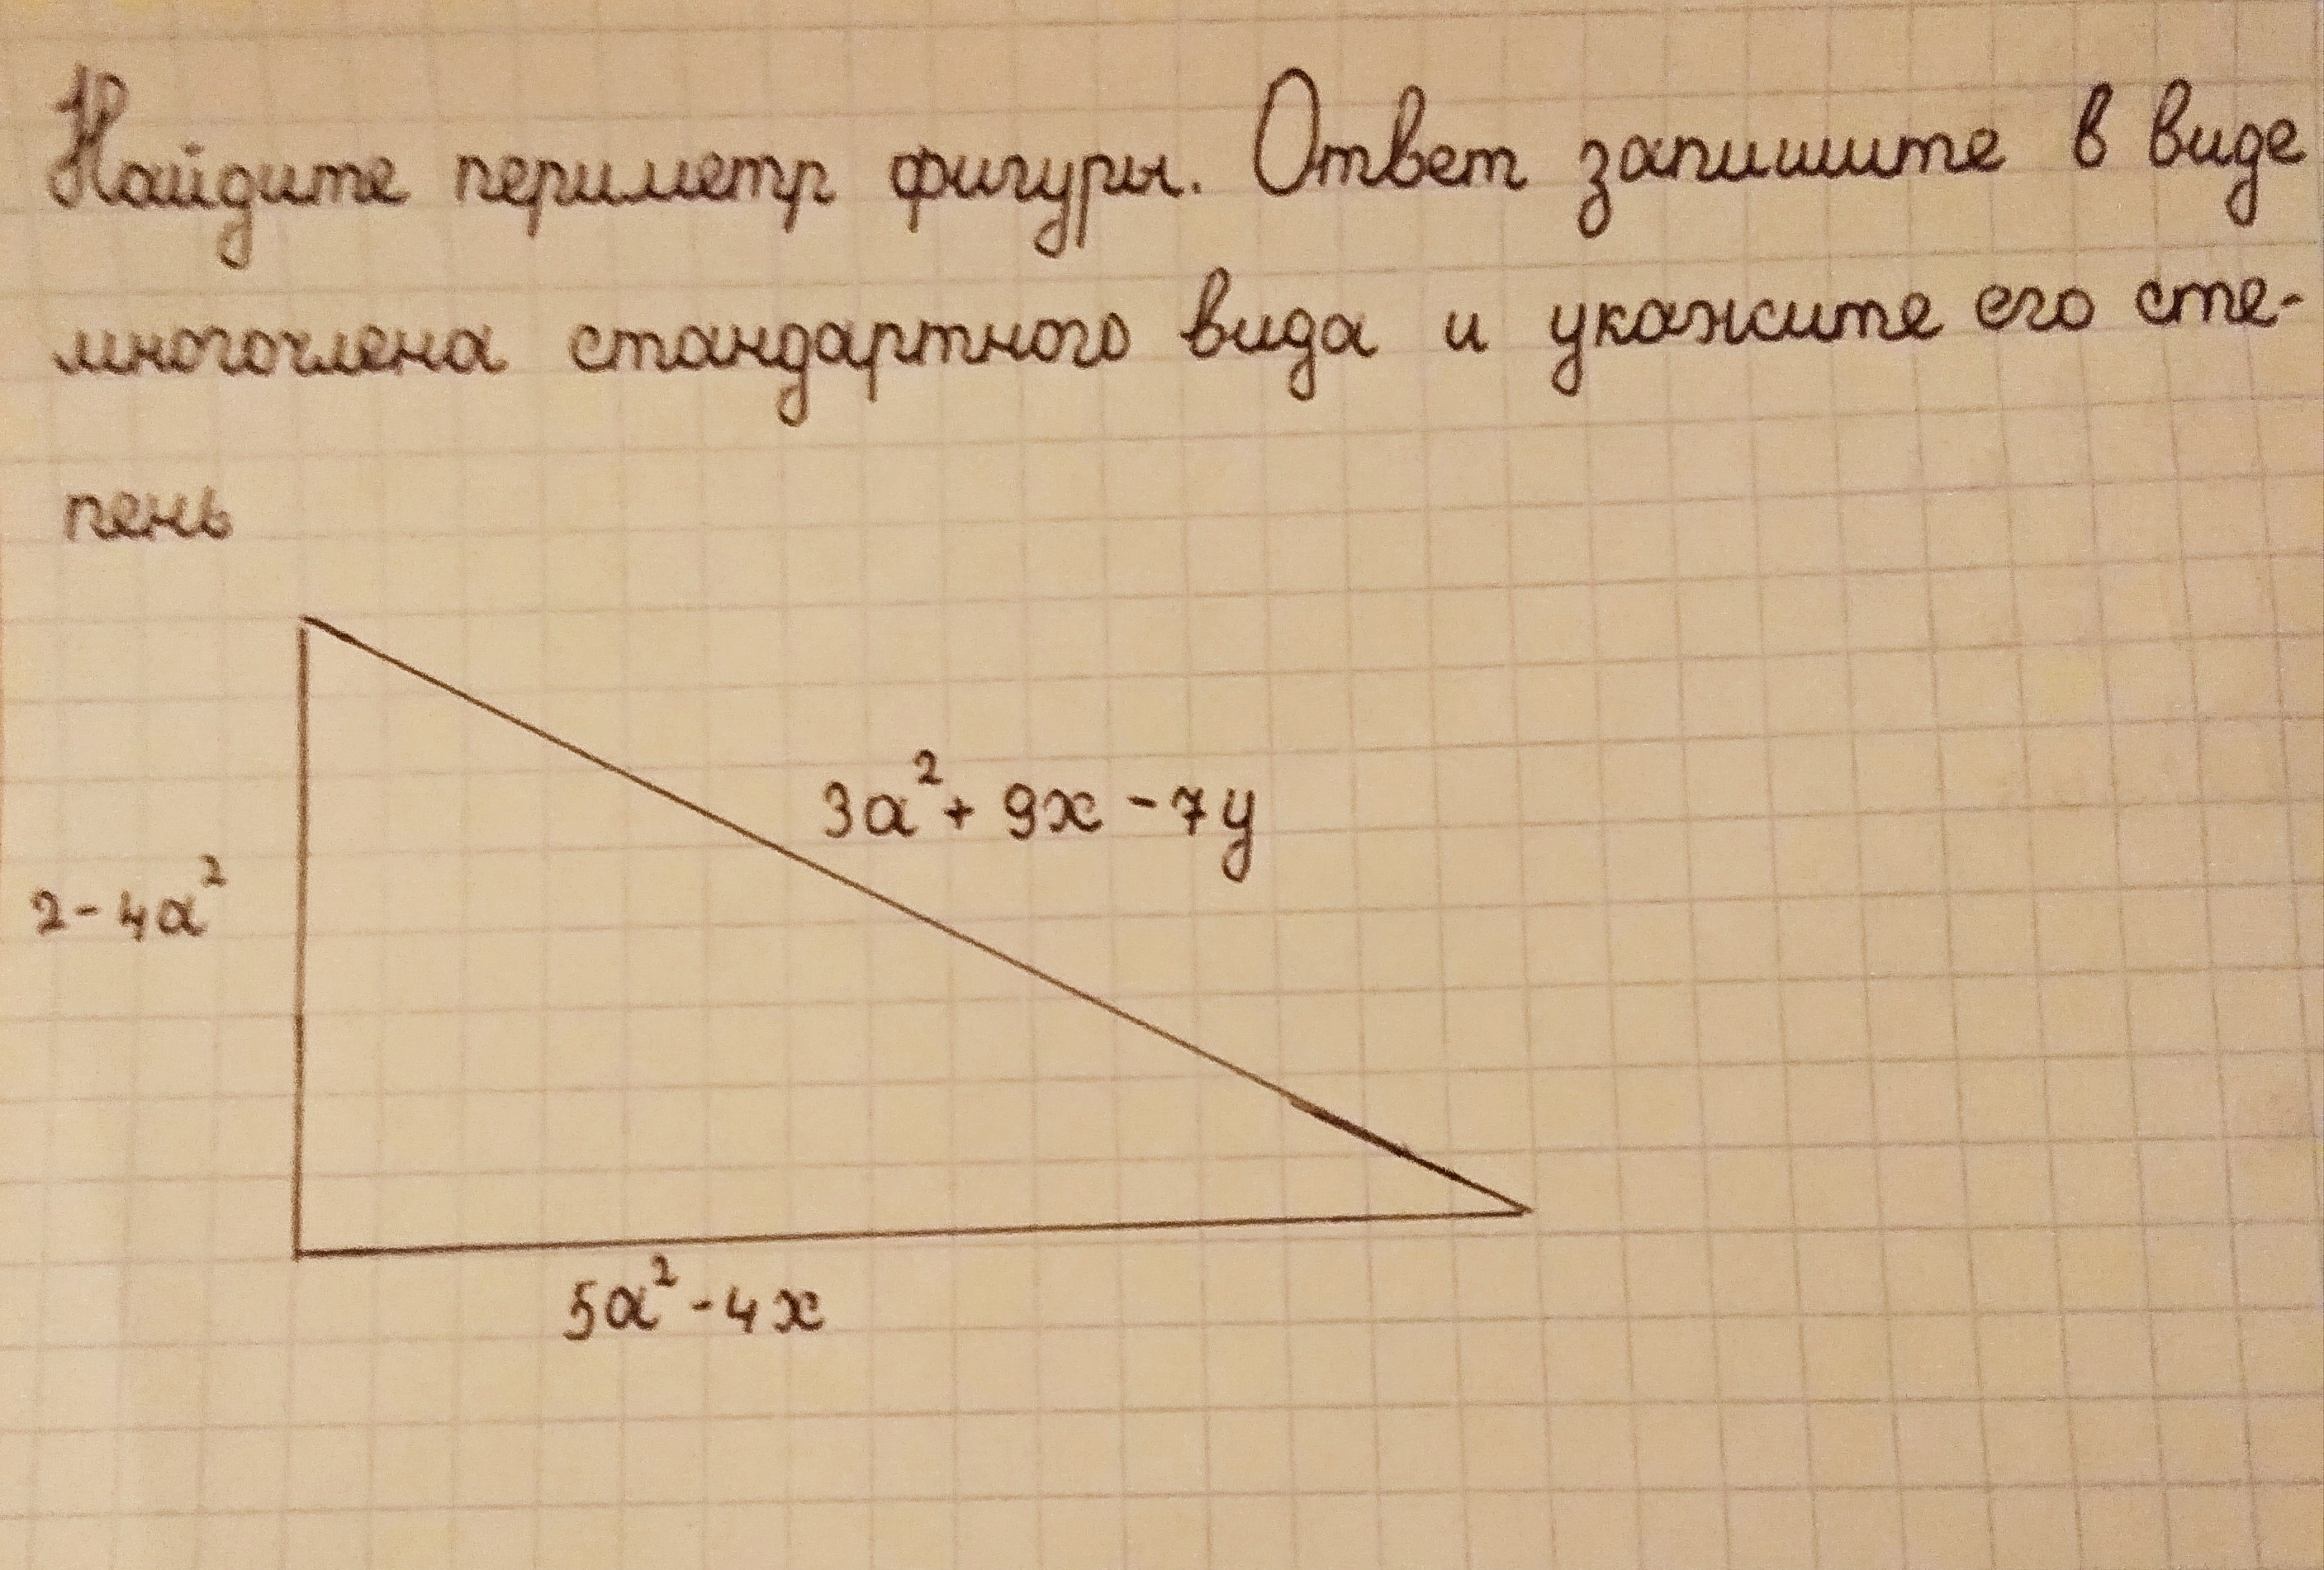 Найдите периметр фигуры. Ответ запишите в виде
многочлена стандартного вида и укажите его сте-
пень
3a²+ 9x - 7y
2 - 4a²
5a² - 4x